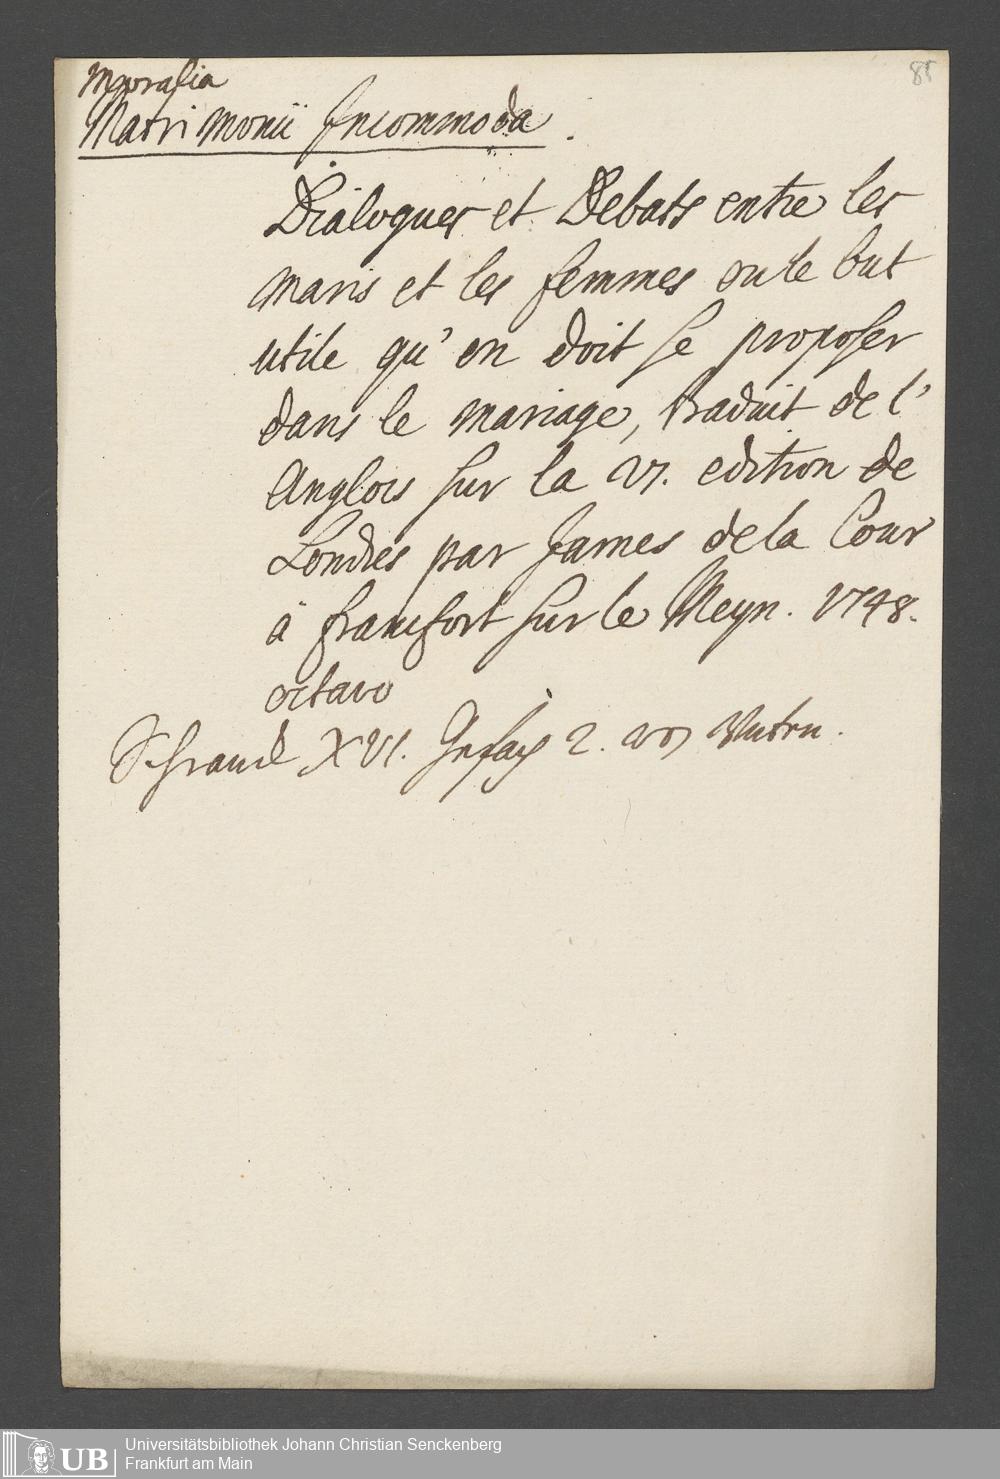 85
Moralia
Matrimonii Incommoda.
Dialogues et Debats entre les
maris et les femmes ou le but
utile qu'on doit se proposer
dans le mariage, traduit de l'
Anglois sur la VI. edition de
Londres par James de la Cour
à francfort sur le Meyn. 1748.
octavo
Schranck XVI. Gefach 2. von Unten.
UB Universitätsbibliothek Johann Christian Senckenberg
Frankfurt am Main